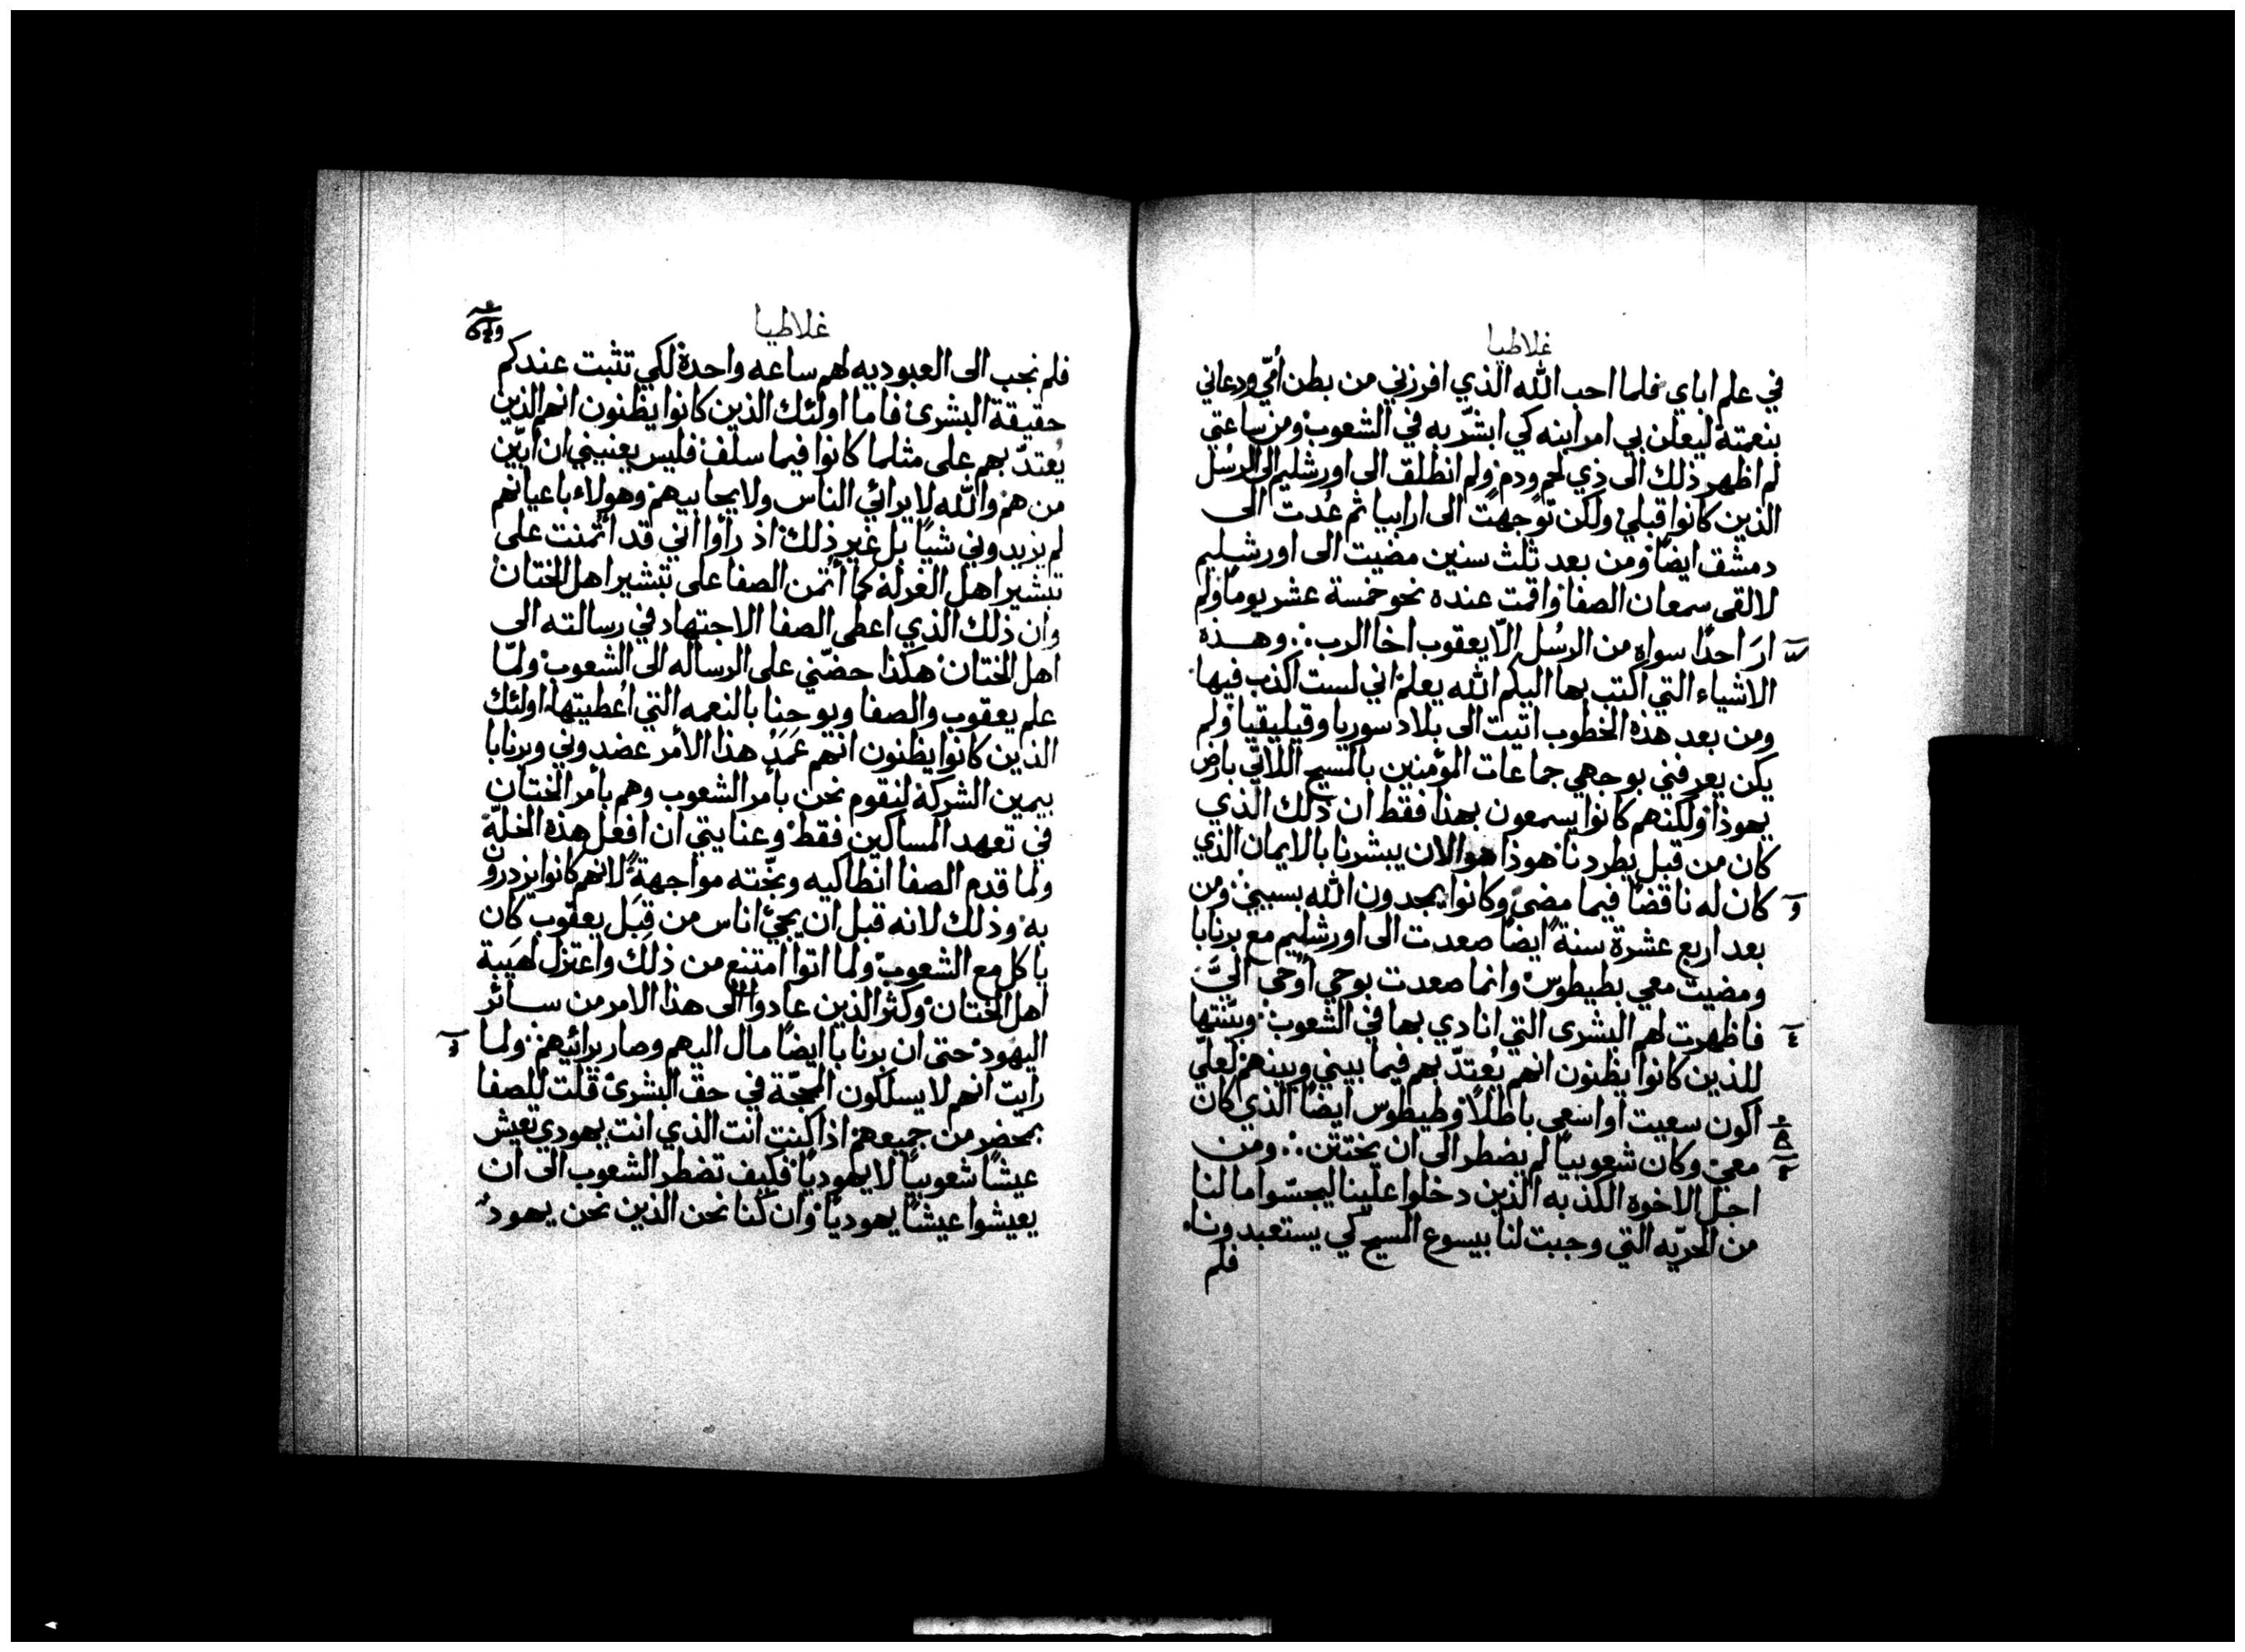 غلاطيا
في علم اباي فلما احب الله الذي افرزني من بطن أمّي ودعاني
بنعمته ليعلن بي امر ابنه كي ابشّر به في الشعوب ومن ساعتي
لم اظهر ذلك الى ذي لحم ودم ولم انطلق الى اورشليم الى الرسُل
الذين كانوا قبلي ولكن توجهت الى ارابيا ثم عُدت الى
دمشق ايضًا ومن بعد ثلث سنين مضيت الى اورشليم
لالقى سمعان الصفا واقمت عنده نحو خمسة عشر يومًا ولم
ارَ احدًا سواه من الرسُل الّا يعقوب اخا الرب ∴ وهذه
الاشياء التي اكتب بها اليكم الله يعلم اني لست اكذب فيها
ومن بعد هذه الخطوب اتيت الى بلاد سوريا وقيليقيا ولم
يكن يعرفني بوجهي جماعات المؤمنين بالمسيح اللاتي بارض
يهوذا ولكنهم كانوا يسمعون بهذا فقط ان ذلك الذي
كان من قبل يطردنا هوذا هو الان يبشرنا بالايمان الذي
كان له ناقضًا فيما مضى وكانوا يمجدون الله بسببي ومن
بعد اربع عشرة سنة ايضًا صعدت الى اورشليم مع برنابا
ومضيت معي بطيطوس وانما صعدت بوحي أُوحى اليَّ
فاظهرت لهم البشرى التي انادي بها في الشعوب وبيّنتها
للذين كانوا يظنون انهم يُعتدّ بهم فيما بيني وبينهم لعلّي
اكون سعيت او اسعى باطلًا وطيطوس ايضًا الذي كان
معي وكان شعوبيًا لم يضطر الى ان يختتن ∴ ومن
اجل الاخوه الكذبه الذين دخلوا علينا ليجسّوا ما لنا
من الحريّه التي وجبت لنا بيسوع المسيح كي يستعبدونا
فلم
غلاطيا
فلم نجب الى العبوديه لهم ساعه واحدة لكي تثبت عندكم
حقيقة البشرى فاما اولئك الذين كانوا يظنون انهم الذين
يُعتدّ بهم على مثلما كانوا فيما سلف فليس يعنيني ان ابيّن
من هم والله لا يرائي الناس ولا يحابيهم وهولاء باعيانهم
لم يزيدوني شيًا بل غير ذلك اذ رأوا اني قد ائتمنت على
تبشير اهل الغرلة كما ائتمن الصفا على تبشير اهل الختان
وان ذلك الذي اعطى الصفا الاجتهاد في رسالته الى
اهل الختان هكذا حضّني على الرساله الى الشعوب ولمّا
علم يعقوب والصفا ويوحنا بالنعمه التي اُعطيتها اولئك
الذين كانوا يظنون انهم عَمَدُ هذا الأمر عضدوني وبرنابا
بيمين الشركة لنقوم نحن بأمر الشعوب وهم بأمر الختان
في تعهد المساكين فقط وعنايتي ان افعل هذه الخلّة
ولما قدم الصفا انطاكيه وبّخته مواجهةً لانهم كانوا يزدرون
به وذلك لانه قبل ان يجئ اناس من قِبَل يعقوب كان
ياكل مع الشعوب ولما اتوا امتنع من ذلك واعتزل لهَيبة
اهل الختان وكثر الذين عادوا الى هذا الامر من سائر
اليهود حتى ان برنابا ايضًا مال اليهم وصار يرائيهم ولما
رايت انهم لا يسلكون المحجّة في حق البشرى قلت للصفا
بمحضر من جميعهم اذا كنت انت الذي انت يهودي تعيش
عيشًا شعوبيًا لا يهوديًا فكيف تضطر الشعوب الى ان
يعيشوا عيشًا يهوديًا وان كنا نحن الذين نحن يهود